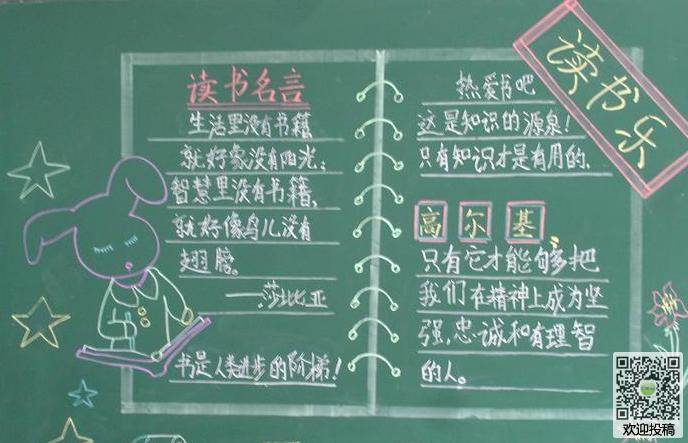 读书乐
读书名言
生活里没有书籍
就好象没有阳光;
智慧里没有书籍、
就好像鸟儿没有
翅膀。
——莎士比亚
书是人类进步的阶梯!
热爱书吧
这是知识的源泉!
只有知识才是有用的、
高尔基
只有它才能够把
我们在精神上成为坚
强,忠诚和有理智
的人。
欢迎投稿